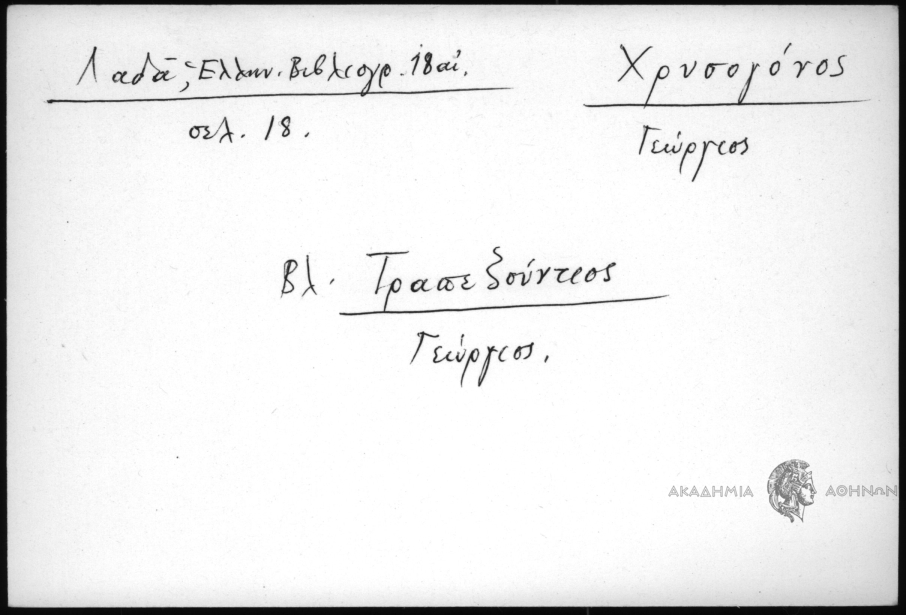 Λαδᾶ, Ἑλλην. Βιβλιογρ. 18 αἰ.
σελ. 18.
Χρυσογόνος
Γεώργιος
Βλ. Τραπεζούντιος
Γεώργιος.
ΑΚΑΔΗΜΙΑ ΑΘΗΝΩΝ